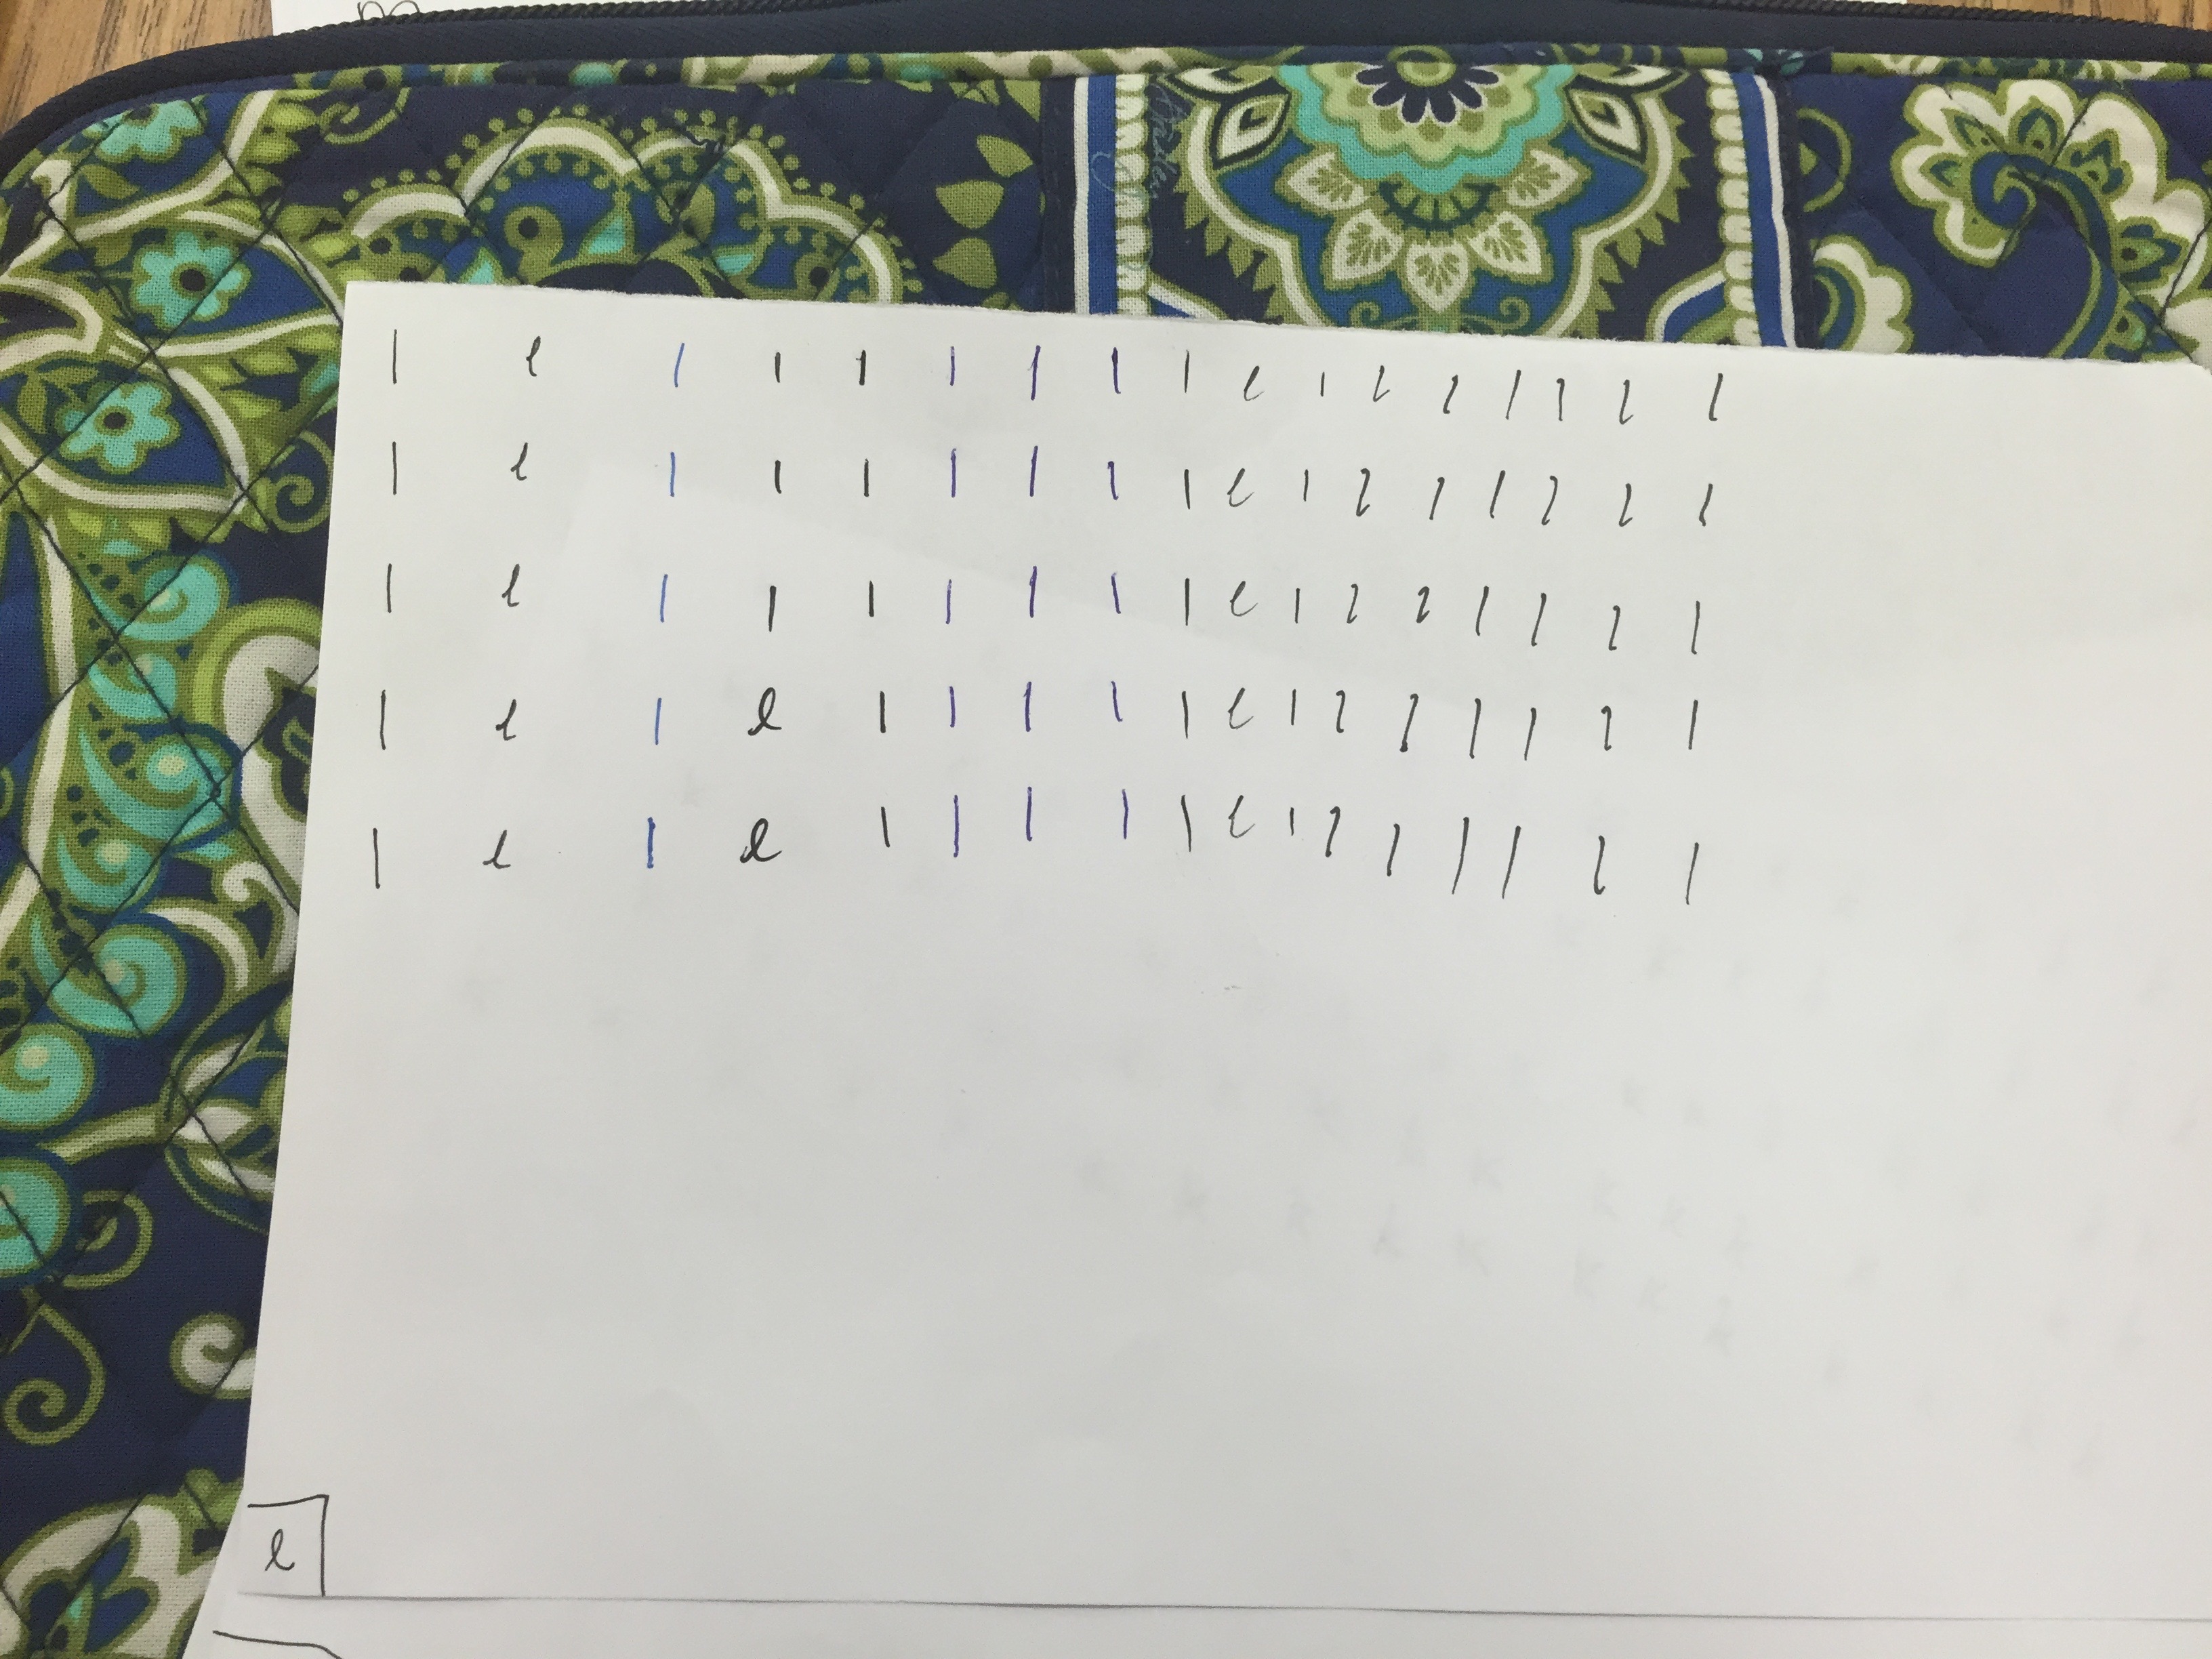 l l l l l l l l l l l l l l l l l
l l l l l l l l l l l l l l l l l
l l l l l l l l l l l l l l l l l
l l l l l l l l l l l l l l l l l
l l l l l l l l l l l l l l l l l
l